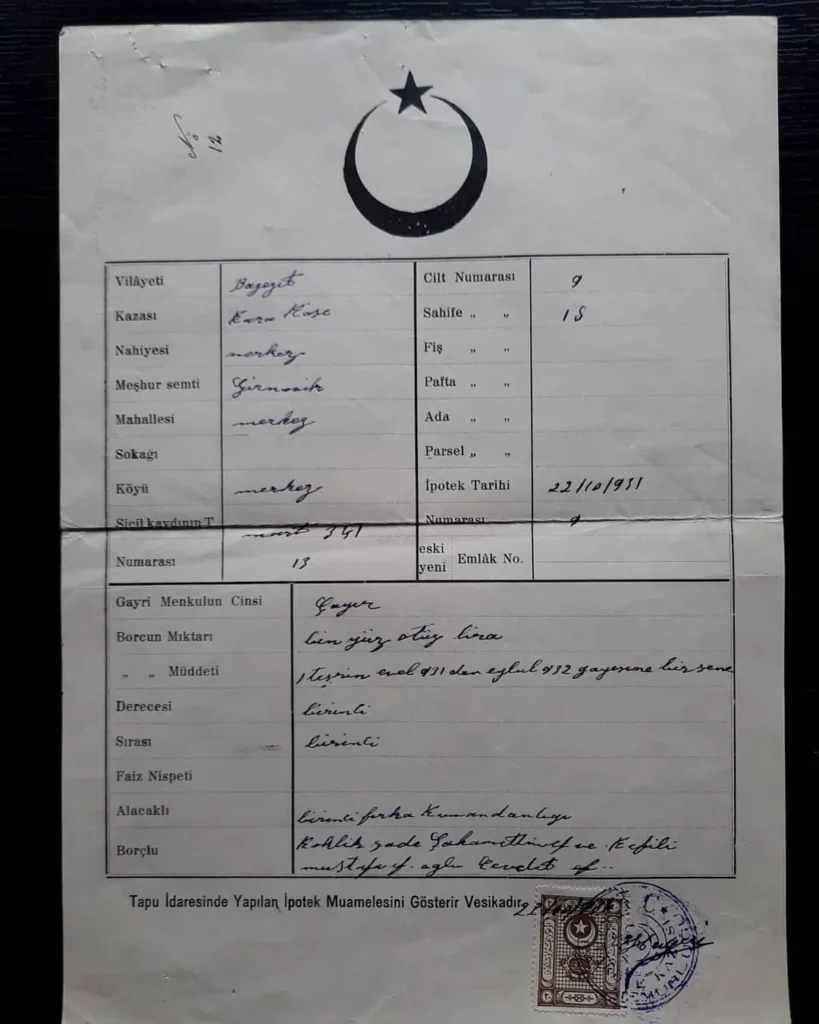 No 12
Vilâyeti Bayezit Cilt Numarası 9
Kazası Kara Köse Sahife „ „ 18
Nahiyesi merkez Fiş „ „
Meşhur semti Pafta „ „
Mahallesi merkez Ada „ „
Sokağı Parsel „ „
Köyü merkez İpotek Tarihi 22/10/931
Sicil kaydının T mart 341 Numarası 9
Numarası 13 eski yeni Emlâk No.
Gayri Menkulun Cinsi Çayır
Borcun Mıktarı bin yüz otuz lira
„ „ Müddeti 1 teşrin evel 931 den eylul 932 gayesine bir sene
Derecesi birinci
Sırası birinci
Faiz Nispeti
Alacaklı birinci fırka Kumandanlığı
Borçlu zade ve Kefili
mustafa ef. oglu Cevdet ef..
Tapu İdaresinde Yapılan İpotek Muamelesini Gösterir Vesikadır